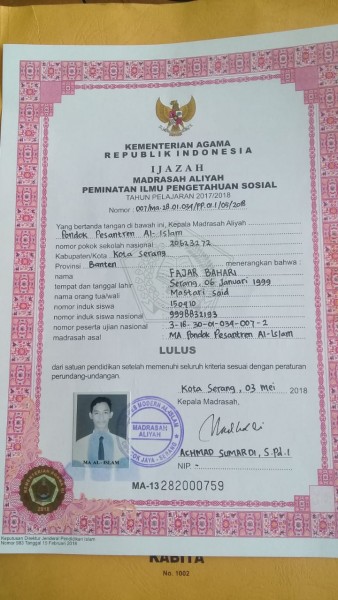 KEMENTERIAN AGAMA
REPUBLIK INDONESIA
IJAZAH
MADRASAH ALIYAH
PEMINATAN ILMU PENGETAHUAN SOSIAL
TAHUN PELAJARAN 2017/2018
Nomor : 007/Ma.28.01.034/PP.01.1/05/2018
Yang bertanda tangan di bawah ini, Kepala Madrasah Aliyah
Pondok Pesantren Al-Islam
nomor pokok sekolah nasional : 20623272
Kabupaten/Kota : Kota Serang
Provinsi : Banten menerangkan bahwa :
FAJAR BAHARI
tempat dan tanggal lahir : Serang, 06 Januari 1999
nama orang tua/wali : Mastari Said
nomor induk siswa : 150910
nomor induk siswa nasional : 9998832193
nomor peserta ujian nasional : 3-18-30-01-034-007-2
madrasah asal : MA Pondok Pesantren Al-Islam
LULUS
dari satuan pendidikan setelah memenuhi seluruh kriteria sesuai dengan peraturan
perundang-undangan.
Kota Serang, 03 Mei 2018
Kepala Madrasah,
MADRASAH
ALIYAH
MA AL - ISLAM
ACHMAD SUMARDI, S.Pd.I
NIP. -
MA-13 282000759
KEMENTERIAN AGAMA
2018
Keputusan Direktur Jenderal Pendidikan Islam
Nomor 993 Tanggal 15 Februari 2018
KABITA
No. 1002